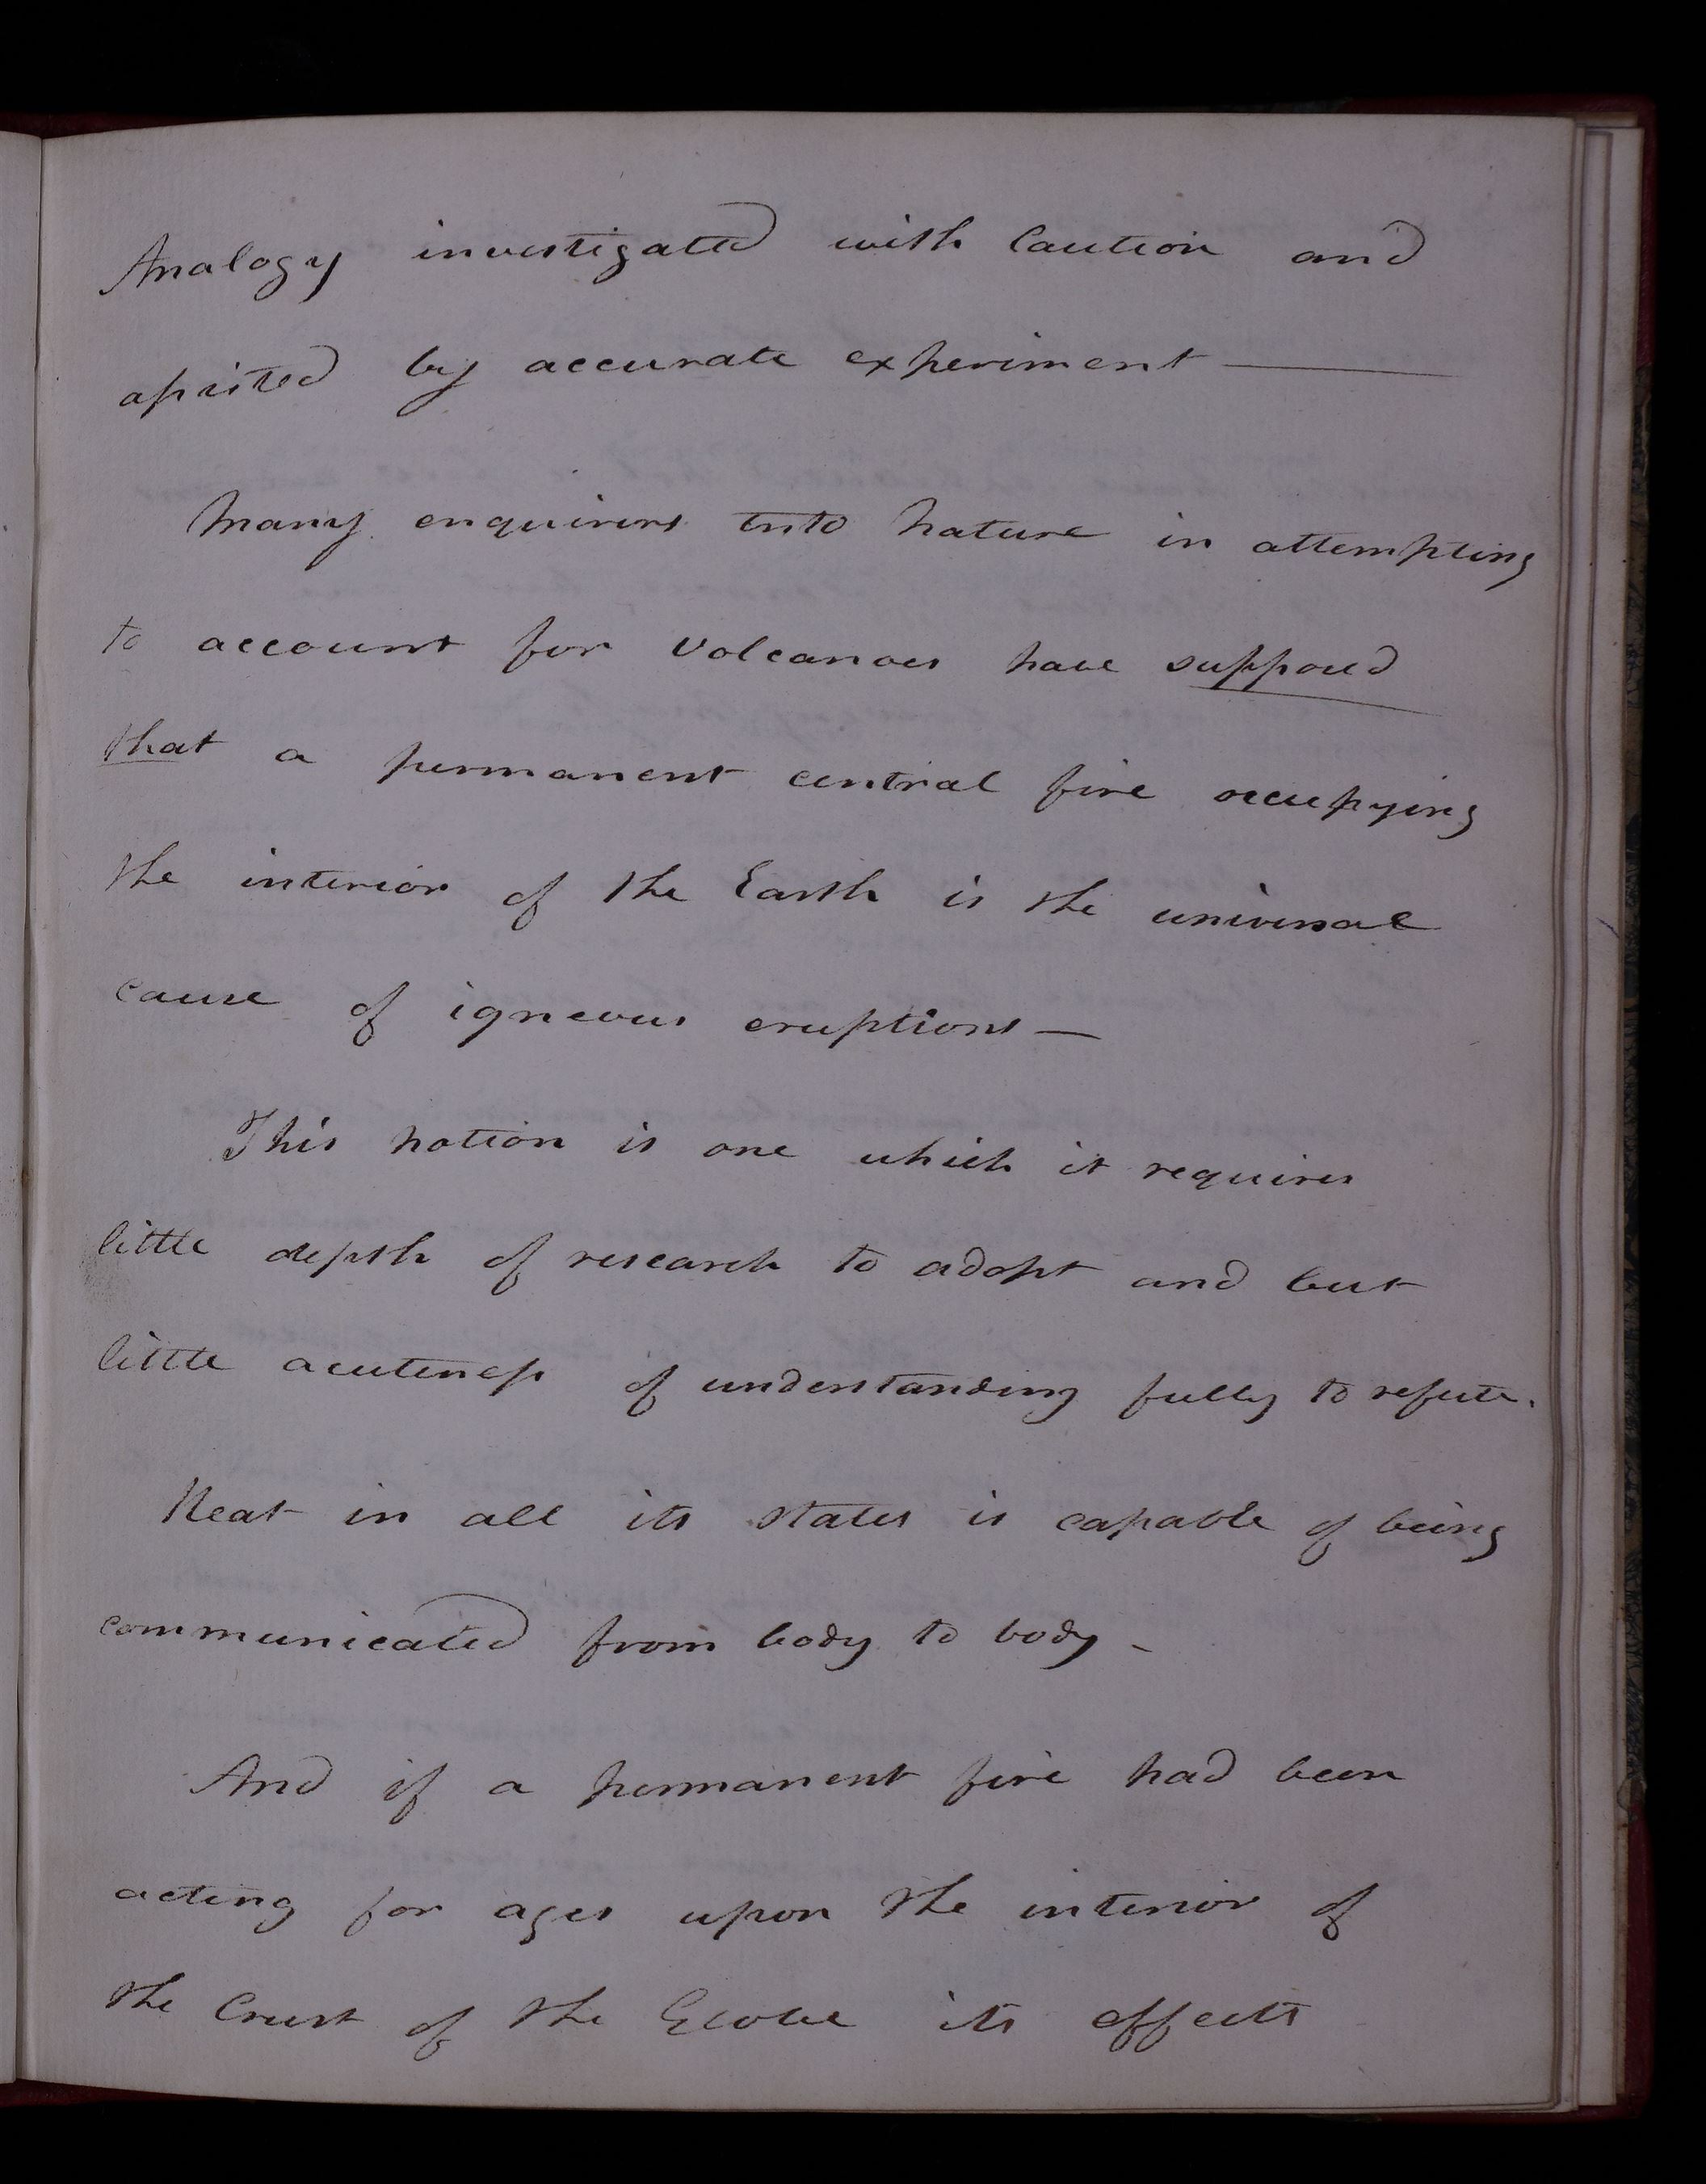 Analogy investigated with Caution and
assisted by accurate experiment —
Many enquirers into Nature in attempting
to account for Volcanoes have supposed
that a permanent central fire occupying
the interior of the Earth is the universal
cause of igneous eruptions —
This notion is one which it requires
little depth of research to adopt and but
little acuteness of understanding fully to refute.
Heat in all its states is capable of being
communicated from body to body -
And if a permanent fire had been
acting for ages upon the interior of
the Crust of the Globe its effects